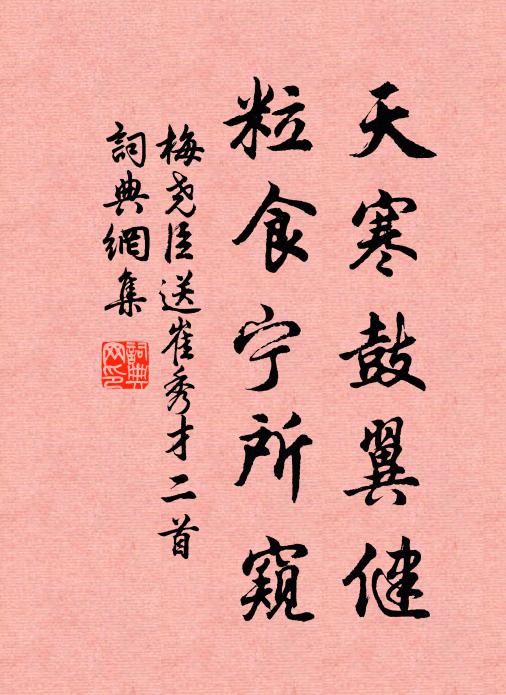 天寒鼓翼健
粒食宁所窥
梅尧臣送崔秀才二首
詞典網集
詞典
网印